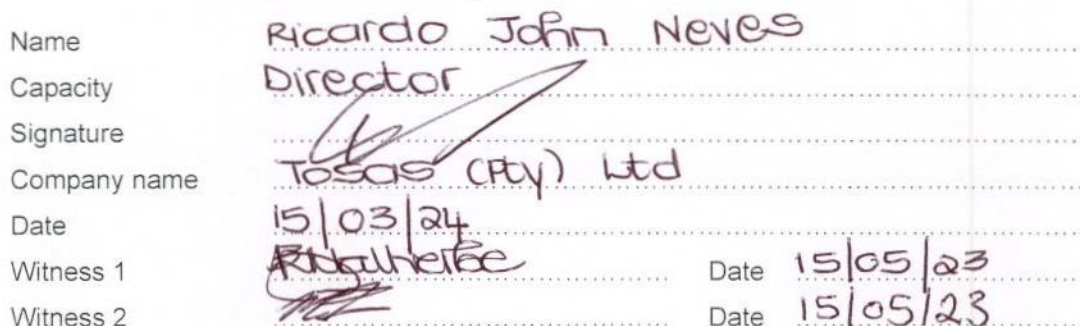 Name Ricardo John Neves
Capacity Director
Signature
Company name Tosas (Pty) Ltd
Date 15/03/24
Witness 1 Date 15/05/23
Witness 2 Date 15/05/23